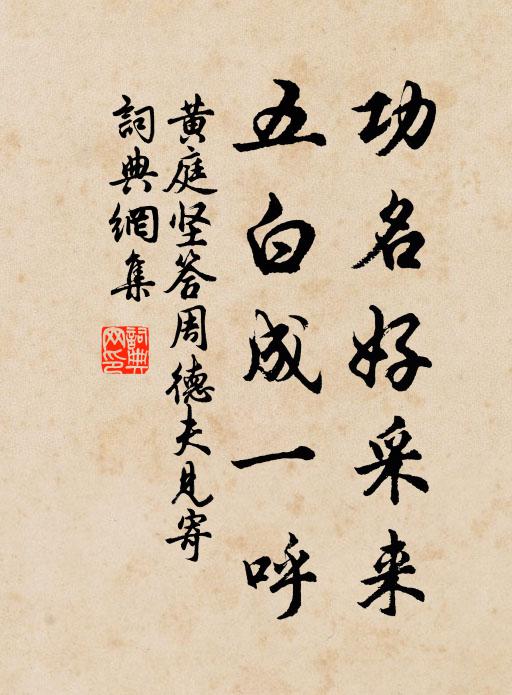 功名好采来
五白成一呼
黄庭坚答周德夫见寄
詞典網集
詞典网印